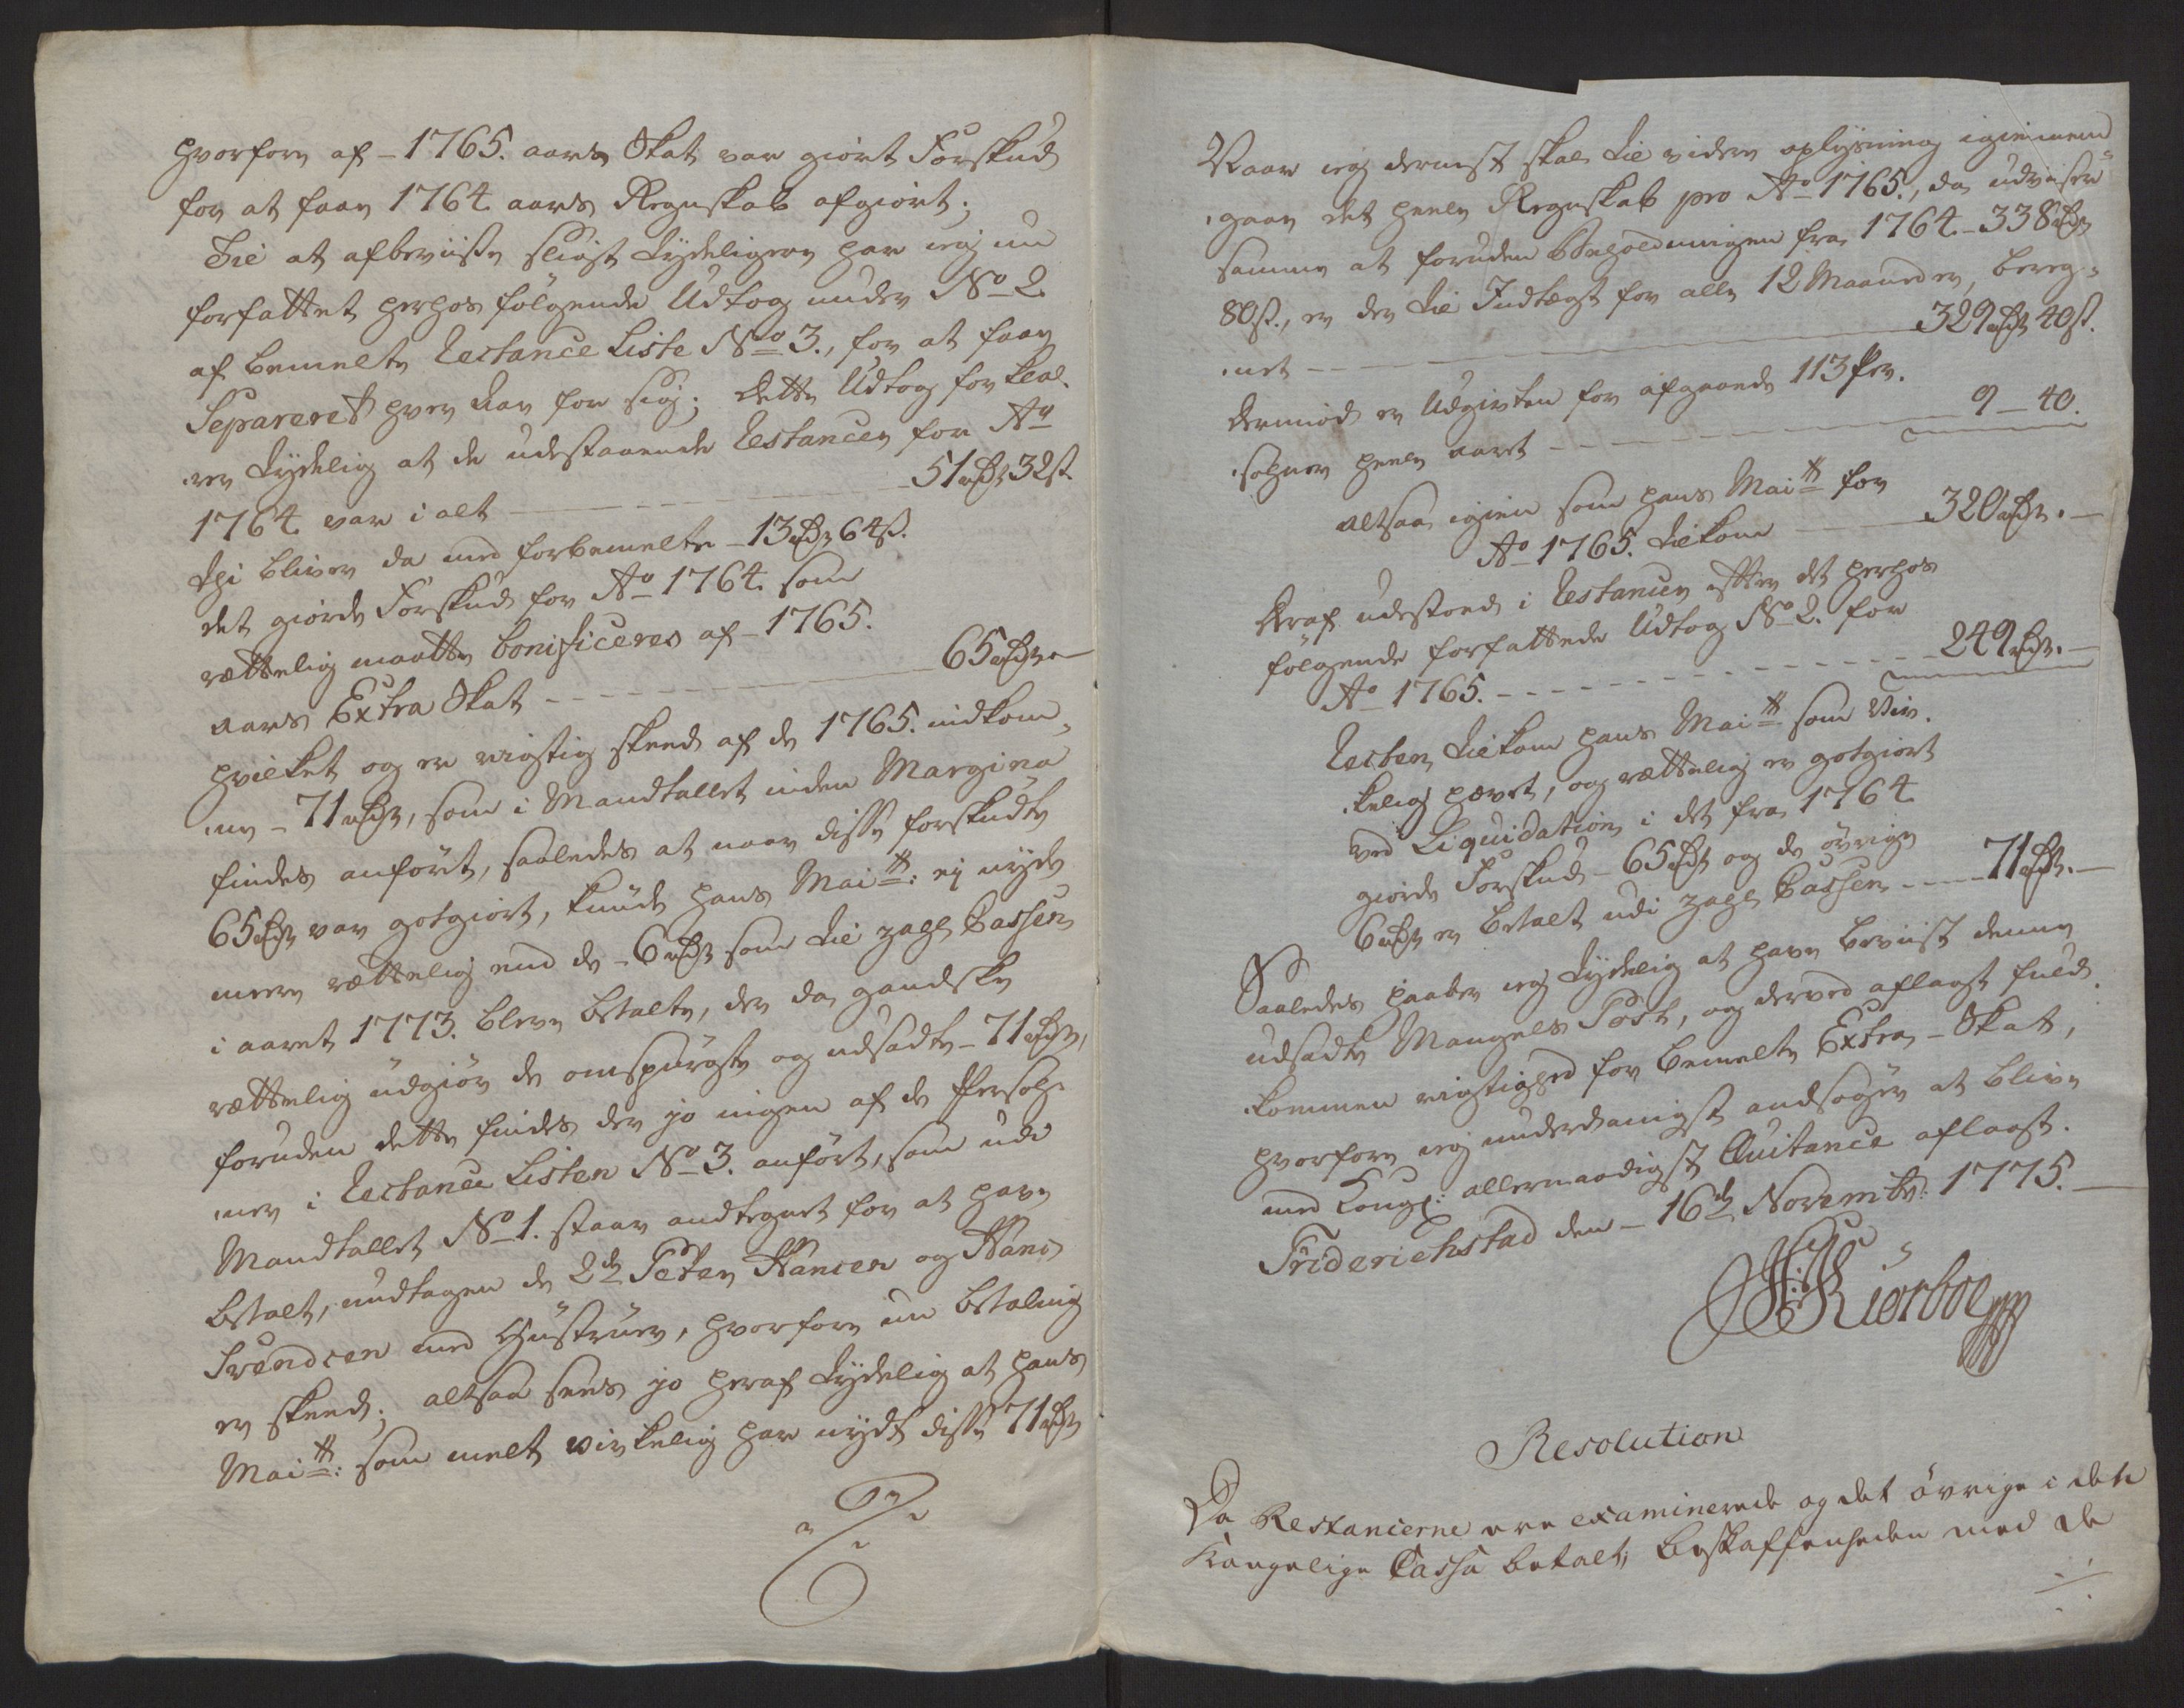 hvorfore af - 1765. aars Skat var giort Forskud
for at faae 1764 aars Regnskab afgiort;
Til at afbeviise sligt tydeligere har ieg nu
forfattet herhos følgende Udtog under No 2.
af bemelte Restance Liste No 3., for at faae
Separeret hver Aar for sig; dette Udtog forkla-
rer tydelig at de udestaaende Restancer for Ao
1764 var i alt - - - 51 rdr 32 s.
Thi bliver da med forbemelte - 13 rdr 64 s.
det giorde Forskud for Ao 1764 som
rettelig maatte bonificeres af - 1765.
aars Extra Skat - - - 65 rdr -
hvilket og er rigtig skeed af de 1765. indkom-
ne - 71 rdr, som i Mandtallet inden Margina
findes anført, saaledes at naar disse forskudte
65 rdr var gotgiort, kunde hans Maitt: ej nyde
meere rettelig end de - 6 rdr som til Zahl Cassen
i aaret 1773. bleve betalte, der da gandske
rettelig udgiør de omspurgte og udsadte - 71 rdr,
foruden dette findes der jo ingen af de Persoh-
ner i Restance Listen No 3. anført, som udi
Mandtallet No 1. staar andtegnet for at have
betalt, undtagen de 2de Peter Hansen og Hans
Svendsen med Hustruer, hvorfore nu betaling
er skeed; altsaa sees jo heraf tydelig at hans
Maitt: som melt virkelig har nydt disse 71 rdr
Naar ieg dernest skal til videre oplysning igiennem-
gaae det heele Regnskab pro Ao 1765., da udviser
samme at foruden Beholdningen fra 1764 - 338 rdr
80 s., er der til Indtægt for alle 12 Maaneder, bereg-
net - - - 329 rdr 40 s.
Dermod er Udgivten for afgaaende 113 Per-
sohner heele aaret - - - 9 - 40.
altsaa igien som hans Maitt for
Ao 1765. tilkom - - - 320 rdr. -
Deraf udestoed i Restancer efter det herhos
følgende forfattede Udtog No 2. for
Ao 1765. - - - 249 rdr. -
Resten tilkom hans Maitt som vir-
kelig hævet, og rettelig er gotgiort
ved Liquidation i det fra 1764
giorde Forskud - 65 rdr og de øvrige
6 rdr er betalt udi Zahl Cassen - - - 71 rdr. -
Saaledes haaber ieg tydelig at have beviist denne
udsadte Mangels Post, og derved aflagt fuld-
kommen rigtighed for bemelte Extra - Skat,
hvorfore ieg underdanigst andsøger at blive
med Kongl: allernaadigst Quitance aflagt.
Friderichstad den - 16de Novembr: 1775. -
Kiørboe
Resolution
Da Restancerne ere examinerede og det øvrige i den
Kongelige Cassa betalt; beskaffenheden med de